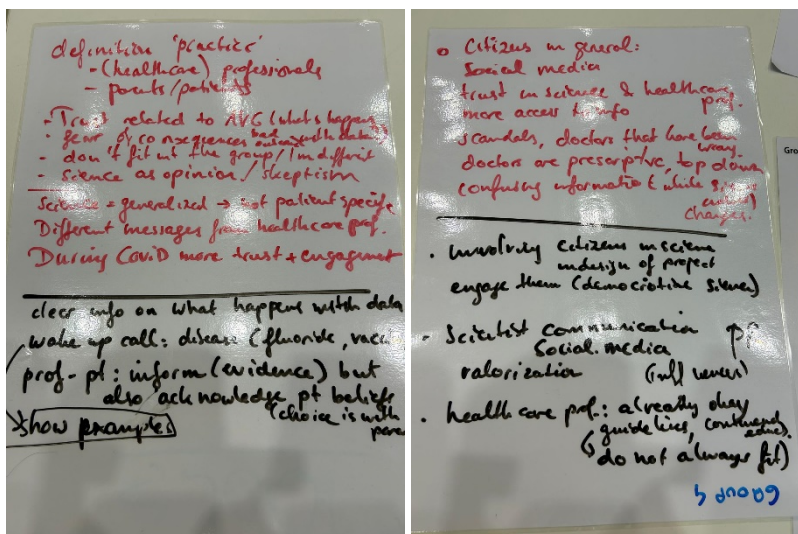 definition 'practice'
- (healthcare) professionals
- parents/patients
- Trust related to AVG (what's happen
with data)
- fear of consequences bad outcomes
- don't fit in the group / I'm different
- science as opinion / skeptism
Science = generalized → not patient specific
Different messages from healthcare prof.
During Covid more trust + engagement
clear info on what happens with data
wake up call: disease (fluoride, vacci
prof - pt: inform (evidence) but
also acknowledge pt beliefs
(choice is with
pare
show examples
o Citizens in general:
Social media
trust in science & healthcare
prof.
more access to info
scandals, doctors that have been
wrong.
doctors are prescriptive, top down
confusing information (while
changes.
• involving citizens in science
in design of project
engage them (democratic science)
• Scientist communication ↑
Social media
valorization (influencers)
• healthcare prof.: already okay
guidelines, continued
educ.
(do not always fit)
Group 4
Gro